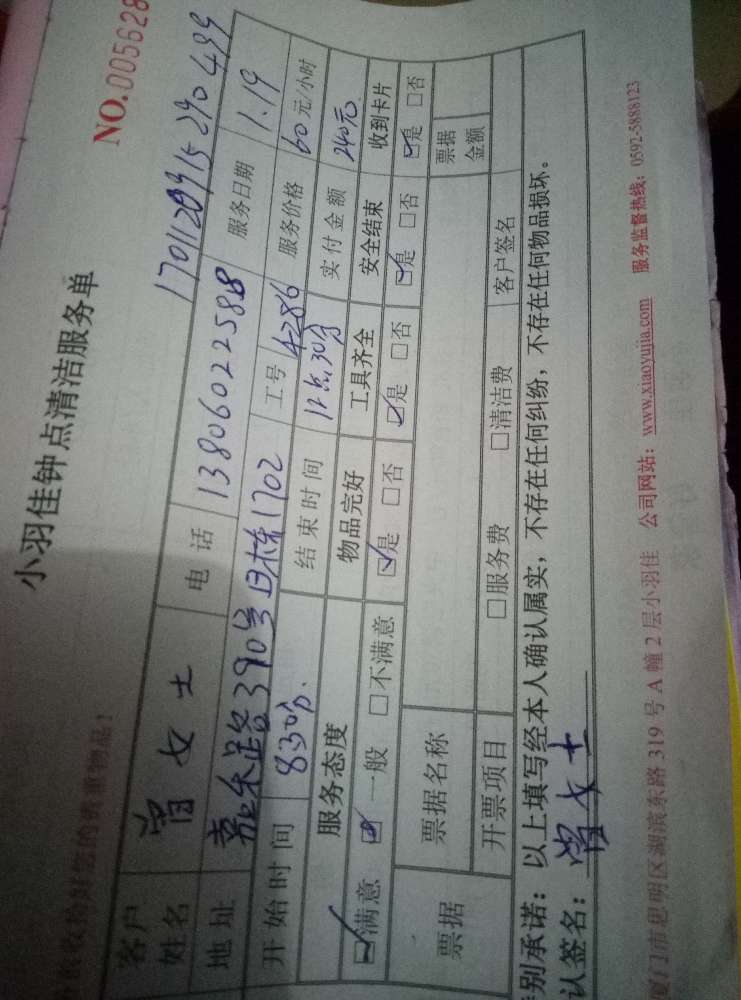 收好您的贵重物品!
小羽佳钟点清洁服务单
NO.005628
客户姓名 曾女士 电话 13806022588 服务日期 1.19
地址 390号 1702 工号 4286 服务价格 60元/小时
开始时间 8点30分 结束时间 12点30分 实付金额 240元
服务态度 物品完好 工具齐全 安全结束 收到卡片
☑满意 ☑一般 □不满意 ☑是 □否 ☑是 □否 ☑是 □否 ☑是 □否
票据 票据名称 票据金额
开票项目 □服务费 □清洁费 客户签名
别承诺:以上填写经本人确认属实,不存在任何纠纷,不存在任何物品损坏。
认签名: 曾女士
厦门市思明区湖滨东路 319 号 A 幢 2 层小羽佳 公司网站:www.xiaoyujia.com 服务监督热线:0592-5888123